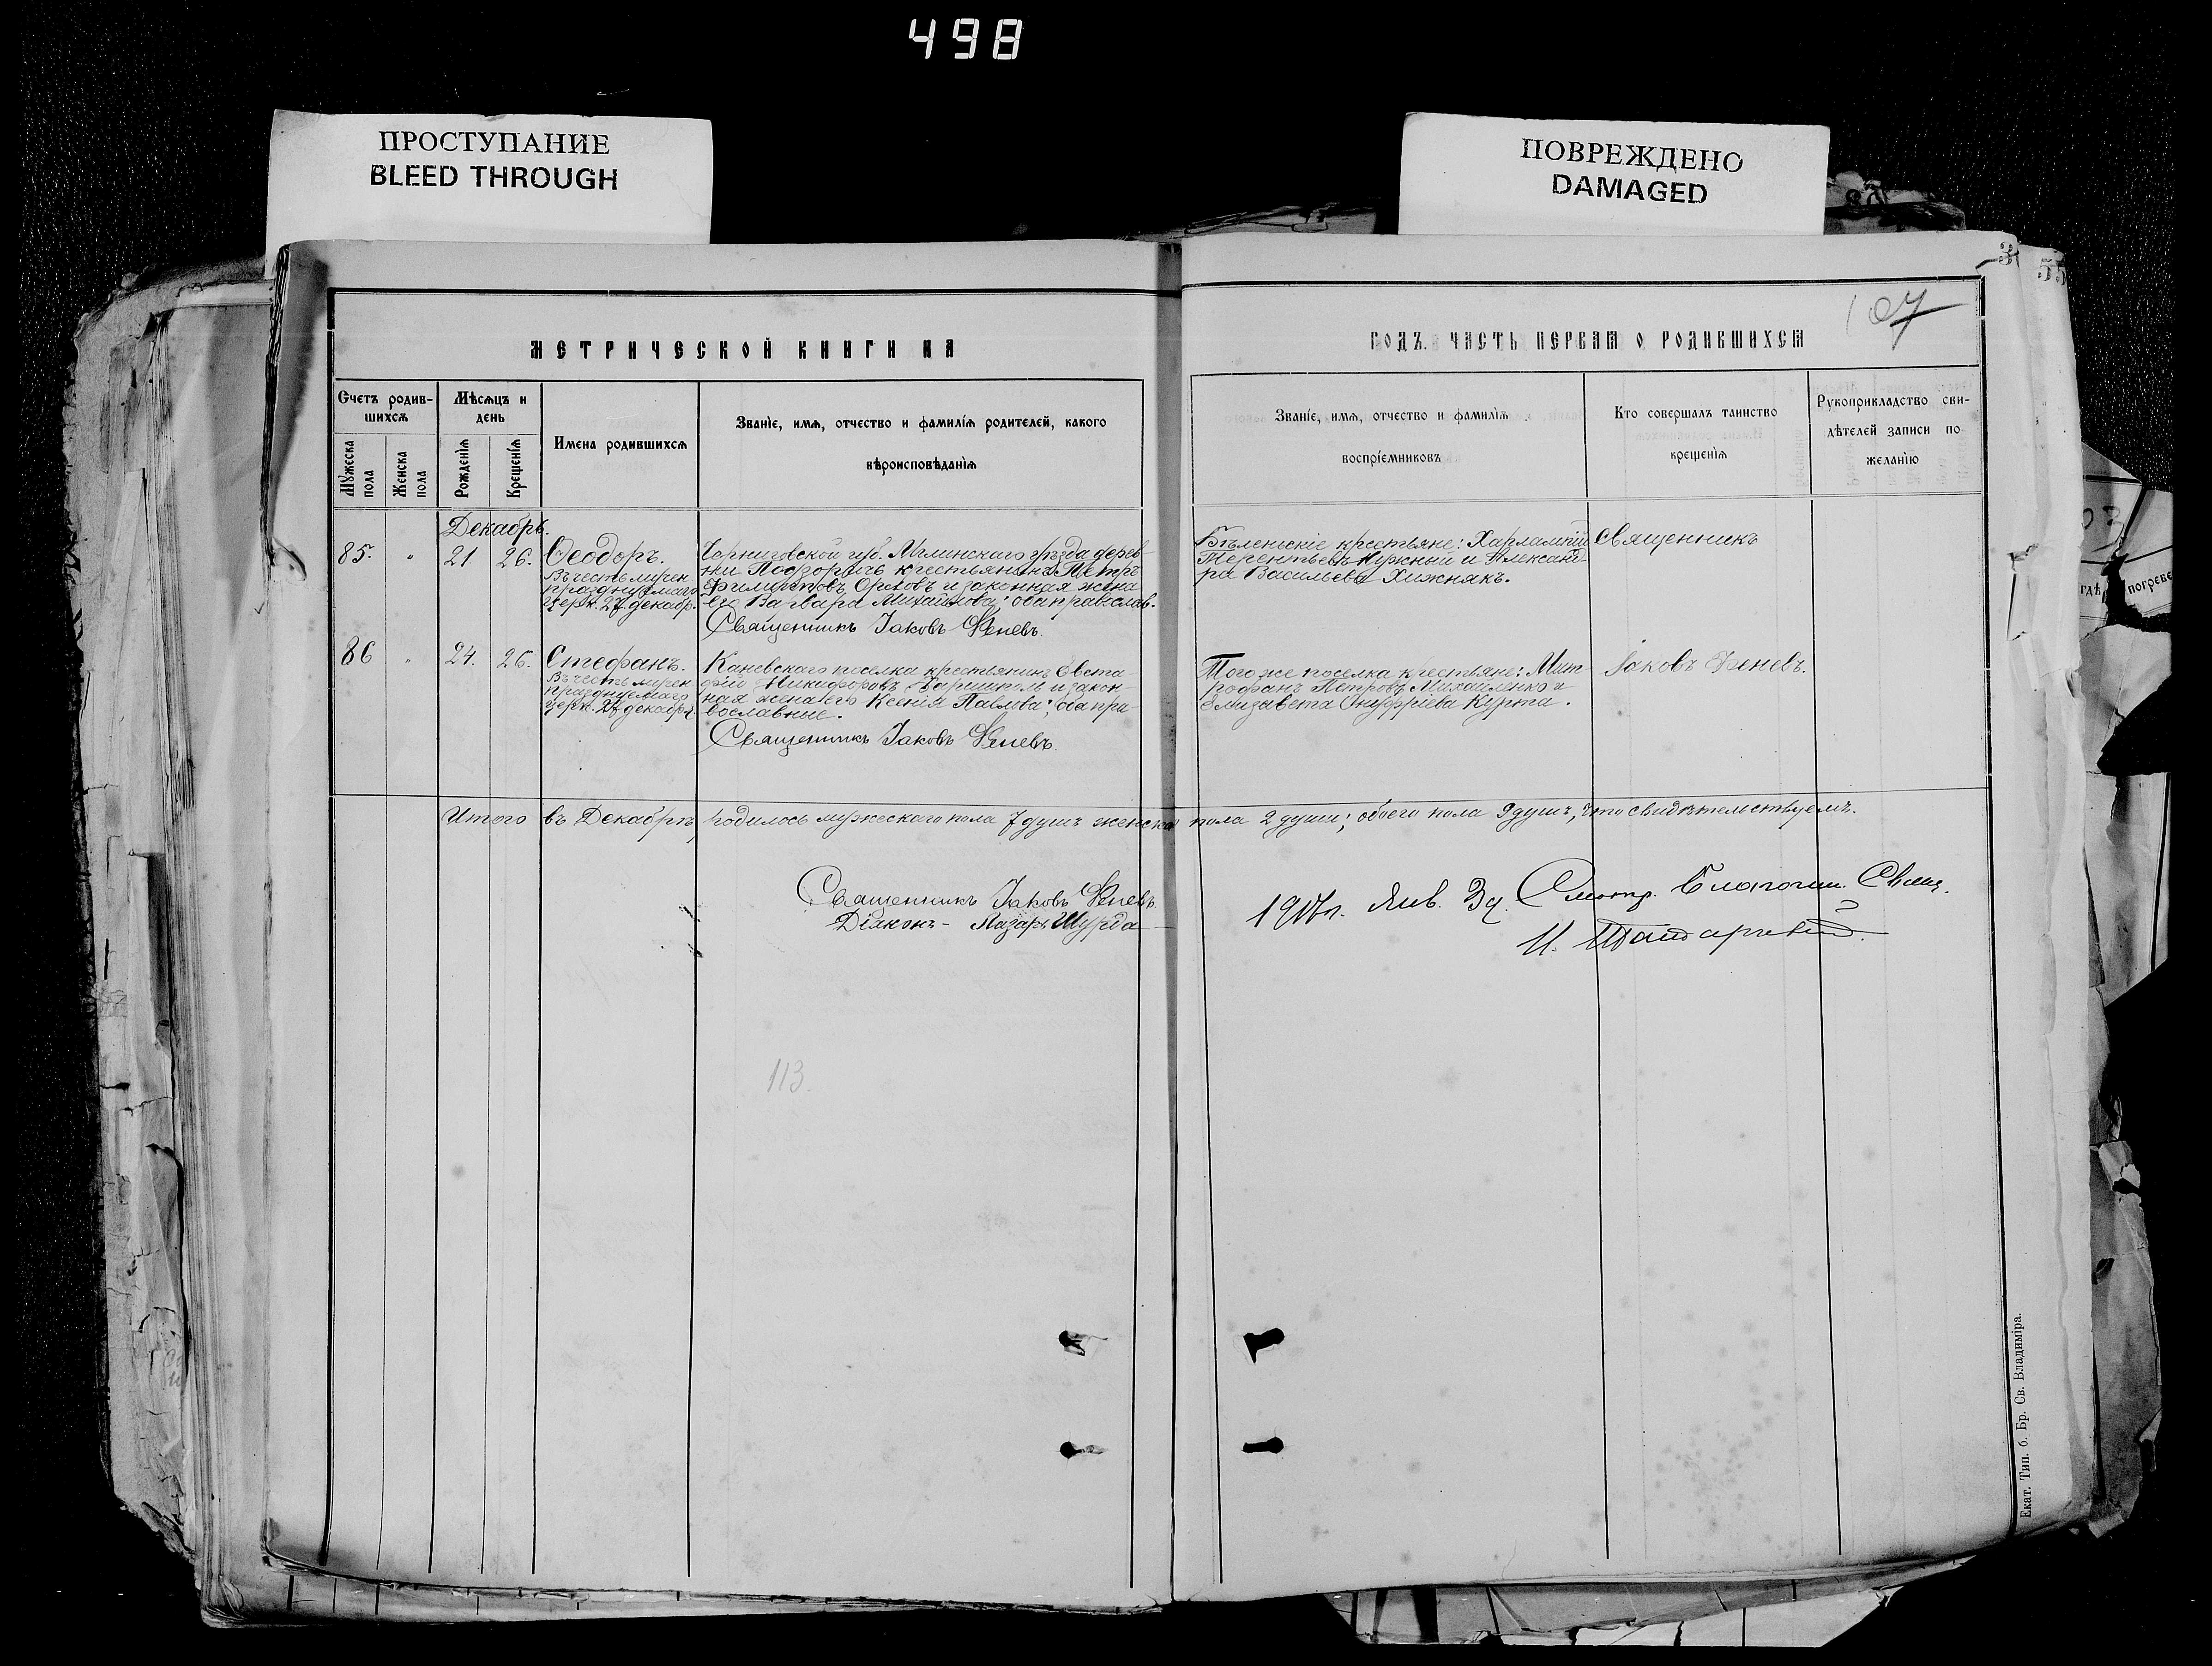 498
ПРОСТУПАНИЕ
BLEED THROUGH
ПОВРЕЖДЕНО
DAMAGED
3
55
107
МЕТРИЧЕСКОЙ КНИГИ НА
ГОДЪ. ЧАСТЬ ПЕРВАЯ О РОДИВШИХСЯ
Счетъ родив-
шихся
Мужеска
пола
Женска
пола
Мѣсяцъ и
день
Рожденія
Крещенія
Имена родившихся
Званіе, имя, отчество и фамилія родителей, какого
вѣроисповѣданія
Званіе, имя, отчество и фамилія
воспріемниковъ
Кто совершалъ таинство
крещенія
Рукоприкладство сви-
дѣтелей записи по
желанію
Декабрь.
85. " 21 26. Ѳеодоръ.
Въ честь мучен
празднуемаго
церк. 27 декабр.
Черниговской губ. Мглинскаго уѣзда дерев-
ни Подзоричъ крестьянинъ Петръ
Орловъ и законная жена
его Варвара Михайлова; оба православ.
Священникъ Іаковъ Феневъ.
Бѣленскіе крестьяне: Харлампій
Терентьевъ Нужный и Александ-
ра Васильева Хижнякъ.
Священникъ
86 " 24. 26. Стефанъ.
Въ честь мучен
празднуемаго
церк. 27 декабря
Каневского поселка крестьянинъ Евста-
фій Никифоровъ и закон-
ная жена его Ксенія Павлова; оба пра-
вославные.
Священникъ Іаковъ Феневъ.
Того же поселка крестьяне: Мит-
рофанъ Петровъ Михайленко и
Елизавета Онуфріева Курта.
Іаковъ Феневъ.
Итого въ Декабрѣ, родилось мужескаго пола 7 душъ женска пола 2 души; обоего пола 9 душъ, что свидѣтельствуемъ.
Священникъ Іаковъ Феневъ
Діаконъ - Лазарь Шурда
1917 г. Янв. 3 д. Смотр. Благочин. Свящ.
113.
Екат. Тип. б. Бр. Св. Владиміра.
гдѣ
погребе